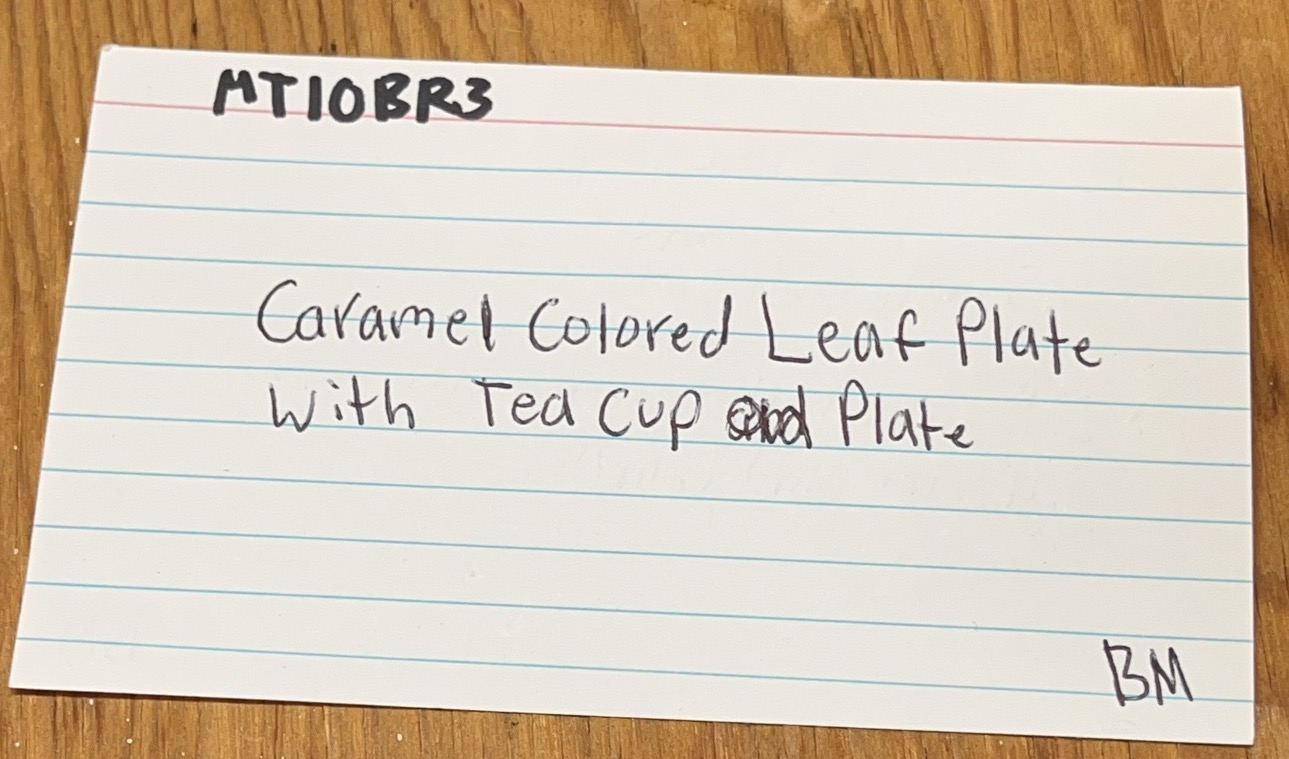 MT10BR3
Caramel Colored Leaf Plate
With Tea Cup and Plate
BM